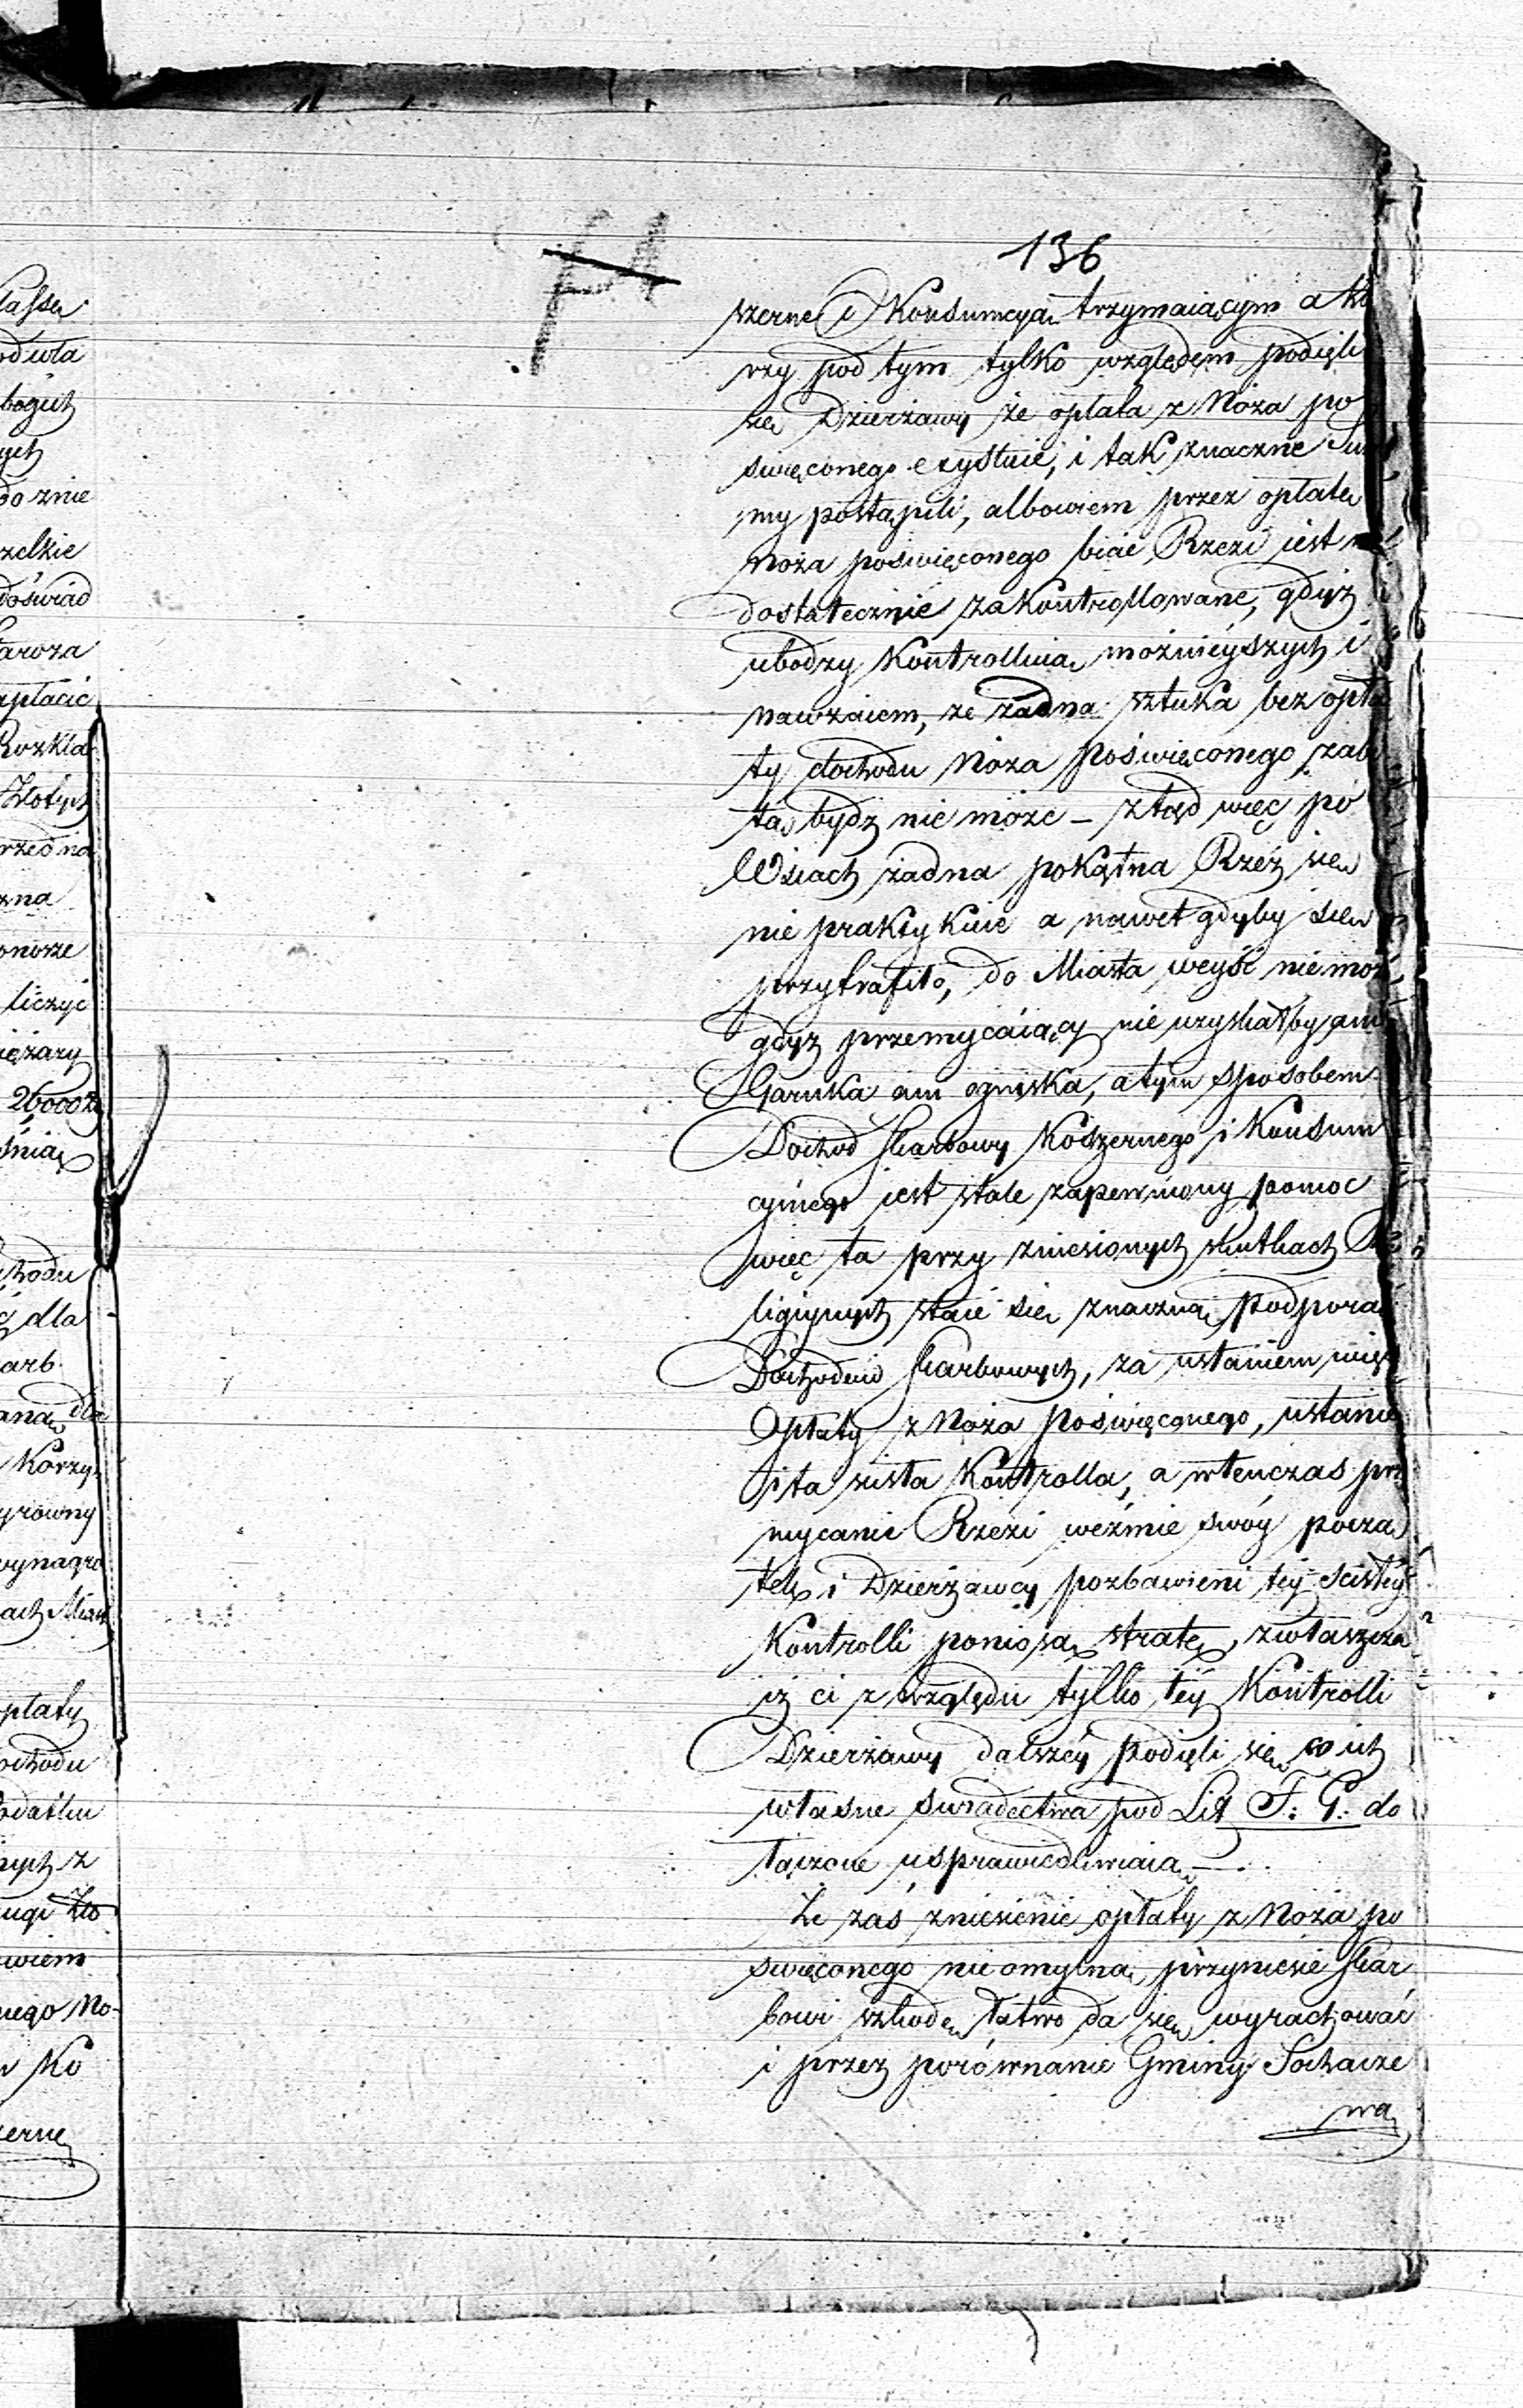 136
szerne i Konsumcyą trzymaiącym a któ
rzy pod tym tylko względem podięli
się Dzierżawy że opłata z Noża po
święconego exystuie, i tak znaczne Sum
my postąpili, albowiem przez opłatę
noża poświęconego bicie Rzezi iest
dostatecznie zakontrollowane, gdyż
ubodzy Kontrolluią możnieyszych i
nawzaiem, że żadna sztuka bez opła
ty dochodu Noża poświęconego zabi
tą bydz nie może – ztąd więc po
Wsiach żadna pokątna Rzeź się
nie praktykuie a nawet gdyby się
przytrafiło, do Miasta weyść nie moż
gdyż przemycaiący nie uzyskałby ani
Garnka ani ogniska, a tym sposobem
Dochod skarbowy Koszernego i Konsum
cyinego iest stale zapewniony pomoc
więc ta przy zniesionych skutkach Re
ligiynych staie się znaczną podporą
Dochodów skarbowych, za ustaniem więc
Opłaty z Noża poświęconego, ustanie
i ta scisła Kontrolla, a wtenczas prze
mycanie Rzezi weźmie swóy począ
tek i Dzierżawcy pozbawieni tey scisłey
Kontrolli poniosą stratę, zwłaszcza
iż ci z względu tylko tey Kontrolli
Dzierżawy dalszey podięli się co ich
własne swiadectwa pod Lit F: G: do
łączone usprawiedliwiaią –.
Że zaś zniesienie opłaty z Noża po
święconego nieomylną przyniesie skar
bowi szkodę łatwo da się wyrachować
i przez porównanie Gminy Sochacze
wa